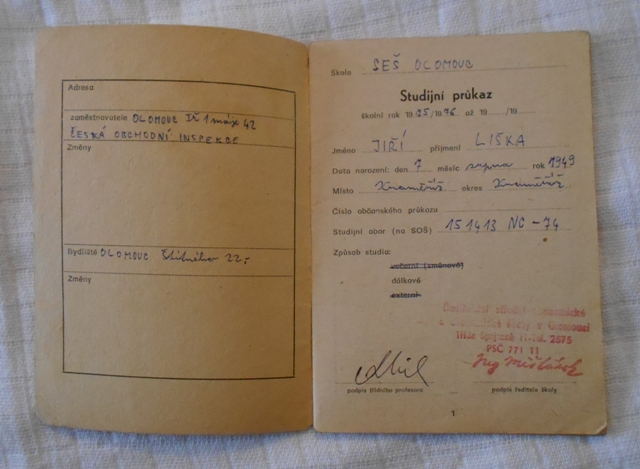 Adresa
zaměstnavatele OLOMOUC Tř 1 máje 42
ČESKÁ OBCHODNÍ INSPEKCE
Změny
Bydliště OLOMOUC 22.-
Změny
Škola SEŠ OLOMOUC
Studijní průkaz
školní rok 1975/1976 až 19 /19
Jméno JIŘÍ příjmení LISKA
Datum narození: den 7 měsíc srpna rok 1949
Místo Kroměříž okres Kroměříž
Číslo občanského průkazu
Studijní obor (na SOŠ) 151413 NC-74
Způsob studia:
večerní (směnové)
dálkové
externí
a školy v Olomouci
Třída Spojenců 11-Tel. 2575
PSČ 771 11
podpis třídního profesora
podpis ředitele školy
1